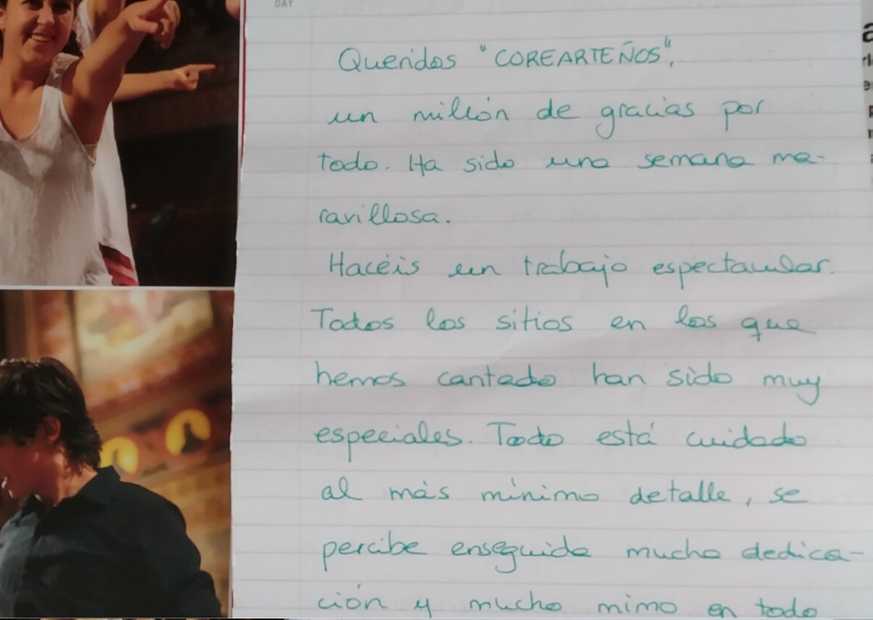 DAY
Queridos "COREARTEÑOS",
un millón de gracias por
todo. Ha sido una semana ma-
ravillosa.
Hacéis un trabajo espectacular.
Todos los sitios en los que
hemos cantado han sido muy
especiales. Todo está cuidado
al más mínimo detalle, se
percibe enseguida mucha dedica-
ción y mucho mimo en todo